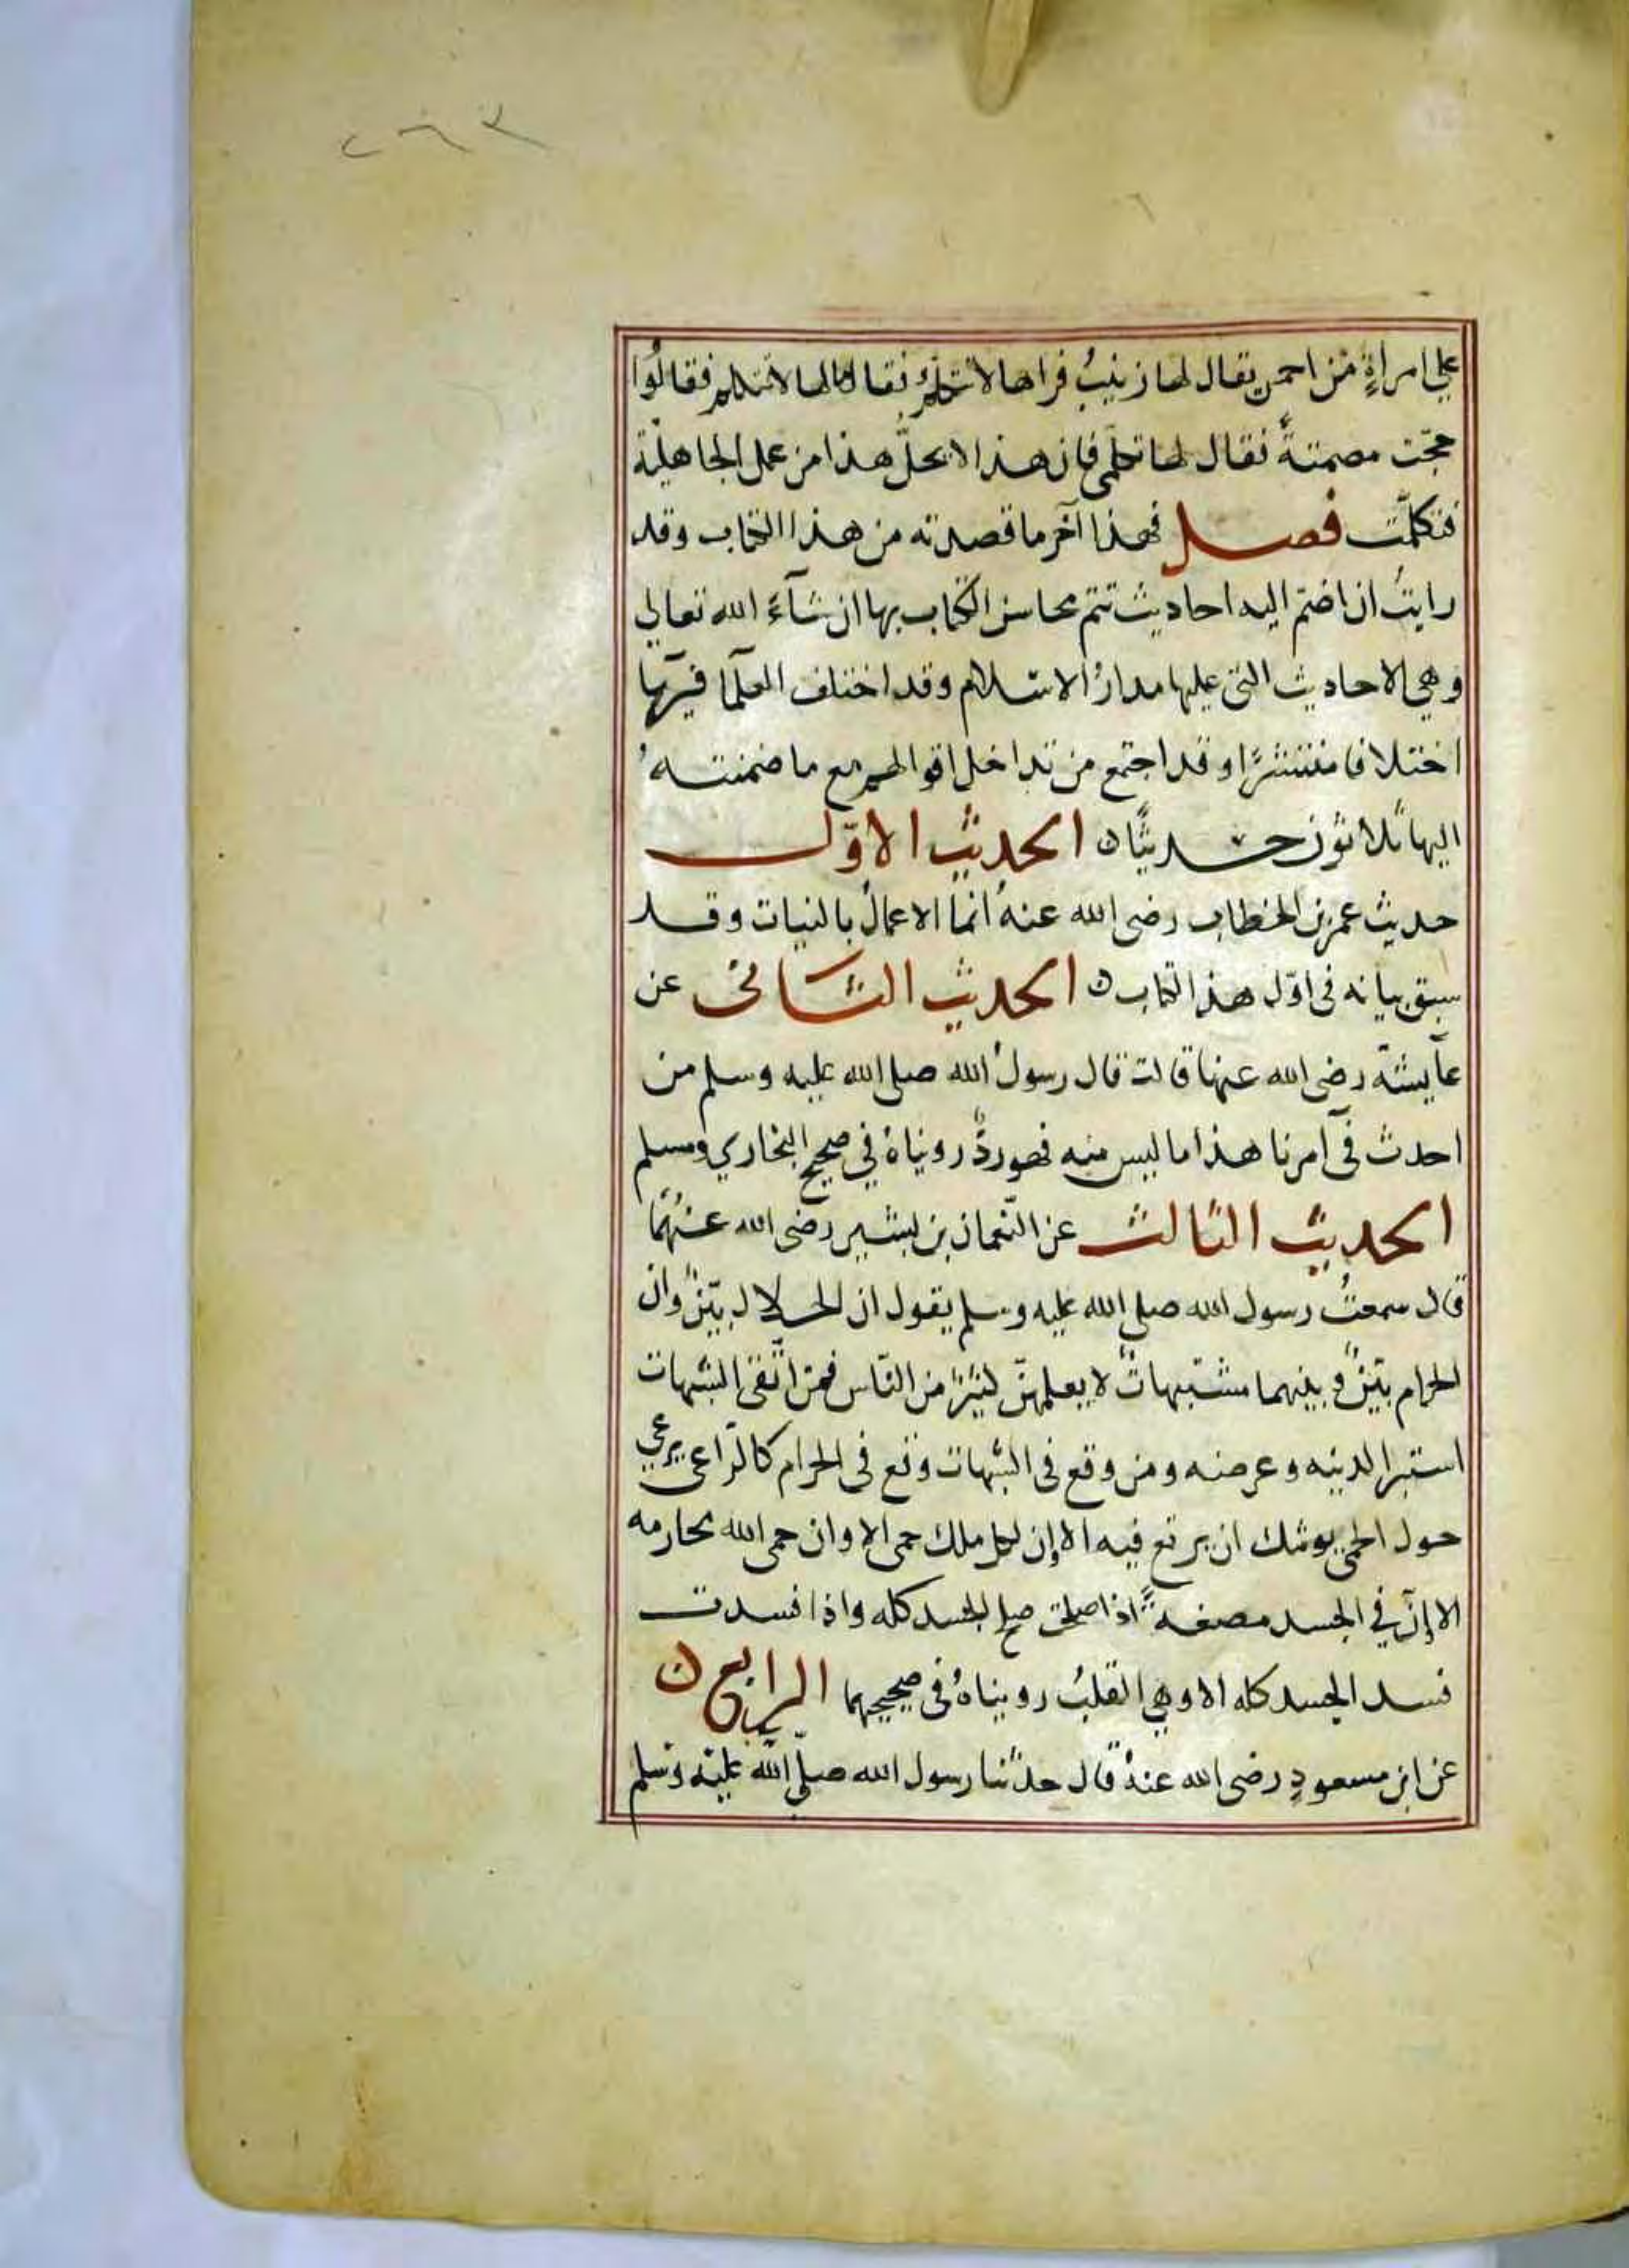 ٢٦٣
علي امراةٍ من احمس يقال لها زينبُ فراها لا تتكلمُ فقال مالها لا تتكلم فقالُوا
حجّت مصمتةً فقال لها تكلمى فان هذا لا يحلّ هذا من عمل الجاهليّة
فتكلمّت فصل فهذا آخر ما قصدته من هذا الكتاب وقد
رايتُ ان اضمّ اليه احاديث تتم محاسن الكتاب بها ان شآءَ الله تعالي
وهي الاحاديث التي عليها مدارُ الاسلام وقد اختلف العلمآ فيها
اختلافا منتشرًا وقد اجتمع من تداخل اقوالهم مع ما ضممتهُ
اليها ثلاثون حديثًا ن الحديث الاوّل
حديث عمر بن الخطاب رضى الله عنهُ انما الاعمالُ بالنيات وقد
سبق بيانه فى اوّل هذا الكتاب ن الحديث الثانى عن
عآيشة رضى الله عنها قالت قال رسولُ الله صلى الله عليه وسلم من
احدث فى امرنا هذا ما ليس منه فهو ردٌّ رويناهُ في صحيح البخاري ومسلم
الحديث الثالث عن النّعمان بن بشير رضى الله عنهُما
قال سمعتُ رسول الله صلي الله عليه وسلم يقول ان الحلال بيّنٌ وان
الحرام بيّنٌ وبينهما مشتبهاتٌ لا يعلمهنّ كثيرٌ من النّاس فمن اتّقى الشبهات
استبرا لدينه وعرضه ومن وقع فى الشبهات وقع فى الحرام كالرّاعى يرعي
حول الحمى يوشك ان يرتع فيه الا إن لكل ملك حمى الا وان حمى الله محارمه
الا إنّ في الجسد مضغةً اذا صلحت صلح الجسد كله واذا فسدت
فسد الجسد كله الا وهي القلبُ رويناهُ فى صحيحيهما الرابع ن
عن ابن مسعودٍ رضى الله عنهُ قال حدّثنا رسول الله صلّى الله عليه وسلم